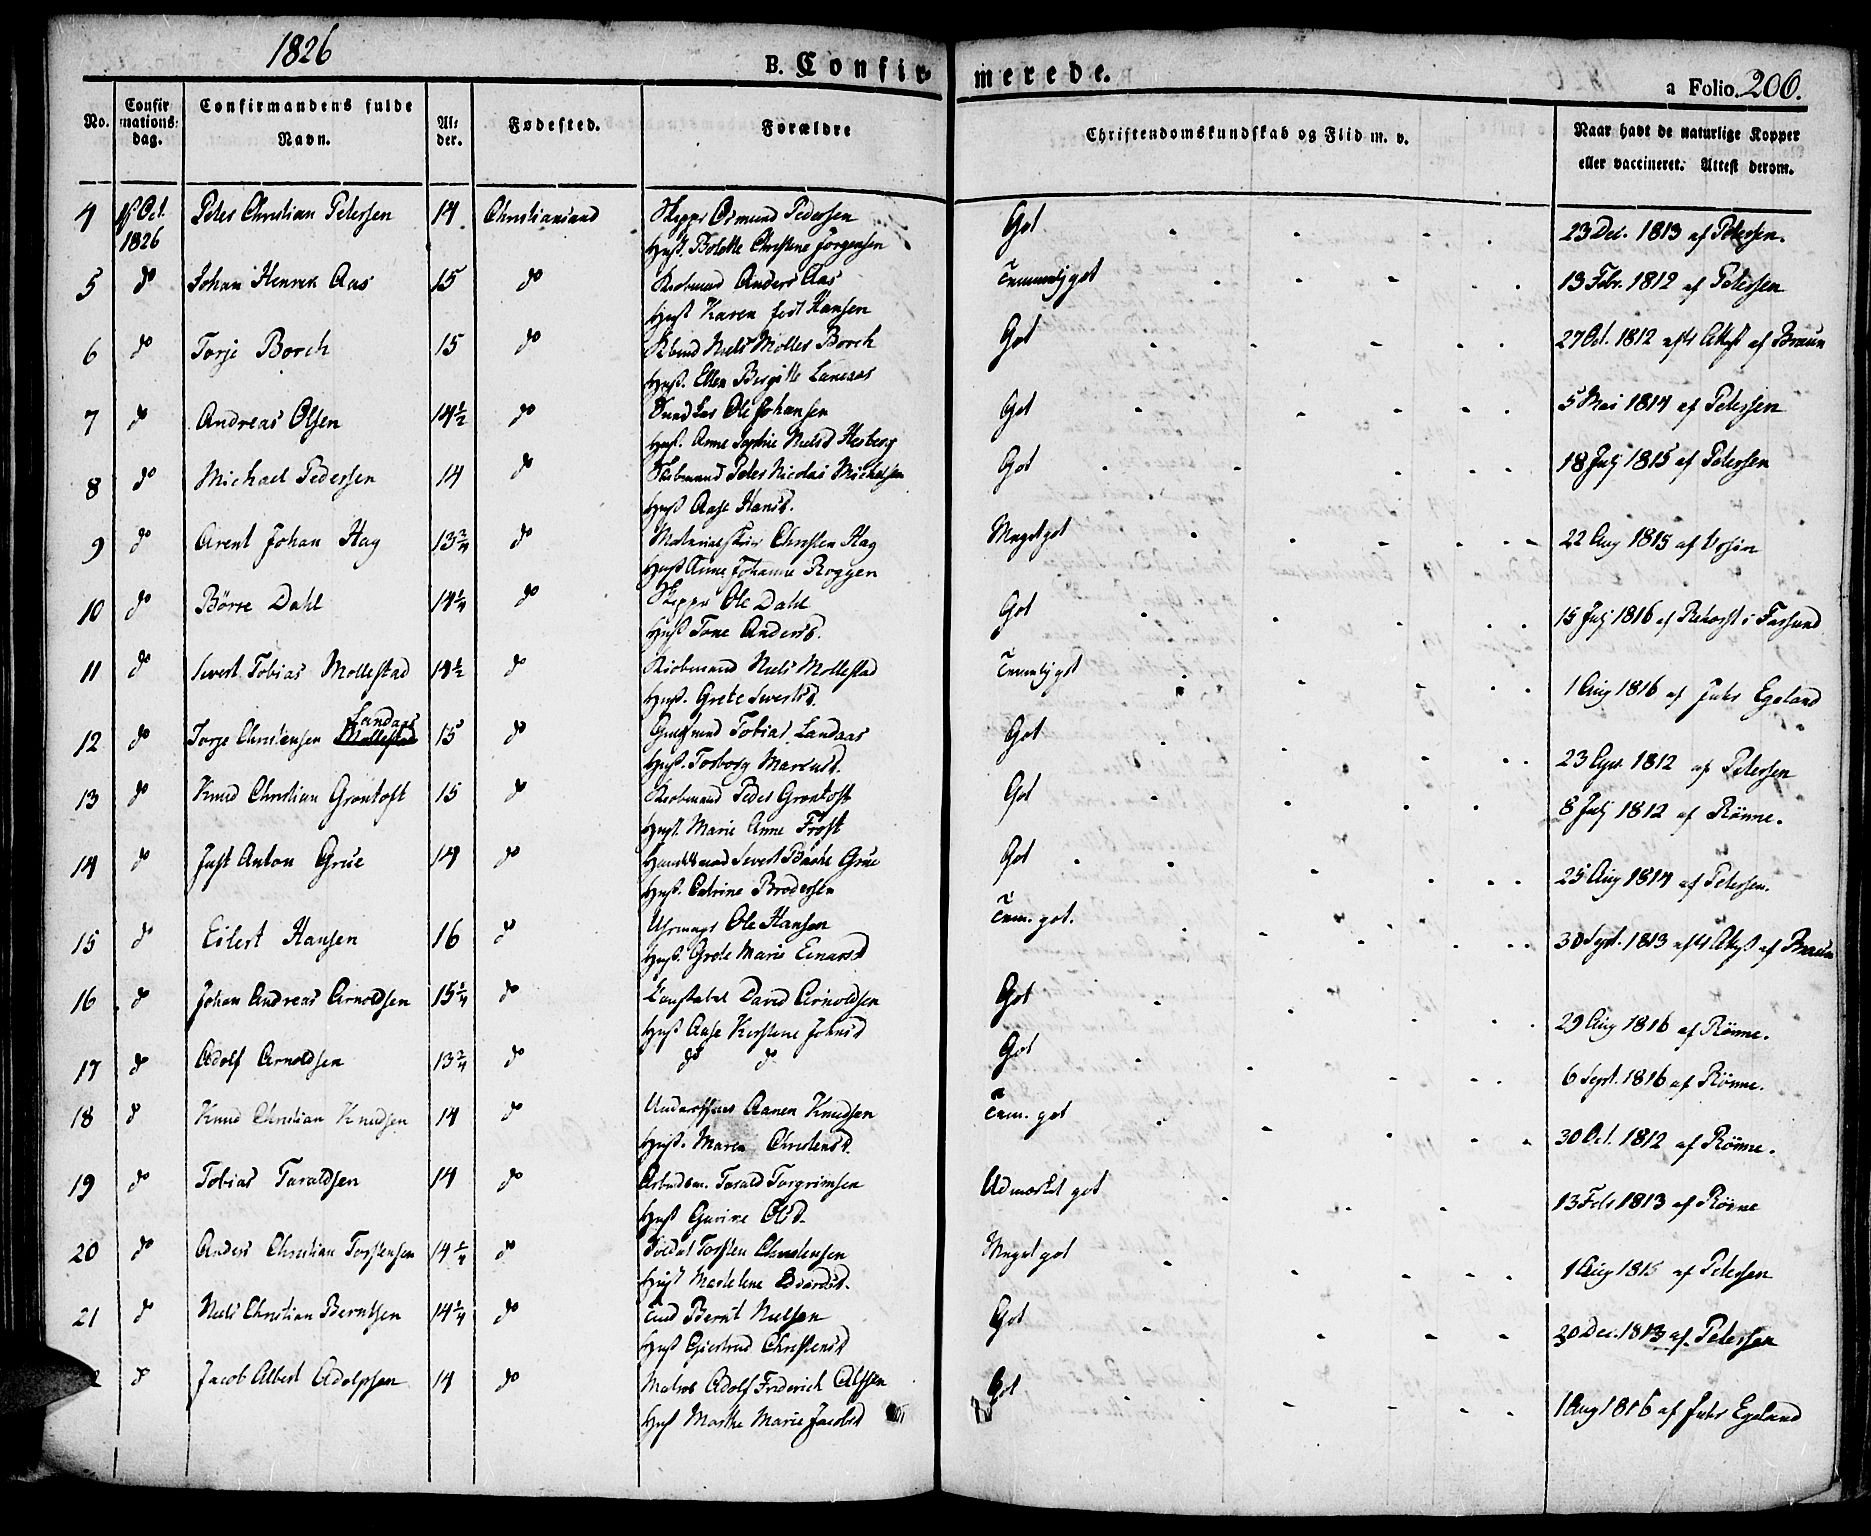 1826
B. Confirmerede.
a Folio. 206.
No. Confirmations: dag. Confirmandens fulde Navn. Alder. Fødested. Forældre Christendomskundskab og Flid m. v. Naar havt de naturlige Kopper eller vaccineret. Attest derom.
4 Oct. 1826 Peter Christian Petersen 14. Christiansand Skippr Osmund Pedersen Got 23 Dec. 1813 af Petersen.
Hust. Bolette Christine Jorgensen
5 do Johan Henrik Aas 15 do Anders Aas Temmelig got 13 Febr. 1812 af Petersen
Hust Karen født Hansen
6 do Torje Borch 15 do Niels Møller Borch Got 27 Oct. 1812 Attest af Braun
Hust. Ellen Birgitte Lanesas
7 do Andreas Olsen 14½ do Ole Johansen Got 5 Mai 1814 af Petersen
Hust. Anne Sophie Nielsd Hesberg
8 do Michael Pedersen 14 do Peter Nicolai Michelsen Got 18 July 1815 af Petersen
Hust Aase Hansd.
9 do Arent Johan Hag 13¾ do Christen Hag Meget got 22 Aug 1815 af
Hust Anne Johanne Roggen
10 do Börre Dahl 14¼ do Skippr Ole Dahl Got 15 July 1816 af i Farsund
Hust Tone Andersd.
11 do Sivert Tobias Mollestad 14½ do Niels Mollestad Temmelig got 1 Aug 1816 af Egeland
Hust. Grete Sivertsd.
12 do Torje Christensen Mollestad Landaas 15 do Tobias Landaas Got 23 1812 af Petersen
Hust. Torborg Marcusd.
13 do Knud Christian Grontoft 15 do Peder Grontoft Got 8 July 1812 af Rönne.
Hust. Marie Anne Frost
14 do Just Anton Grue 14 do Sivert Grue Got 25 Aug 1814 af Petersen.
Hust. Catrine Brodersen
15 do Eilert Hansen 16 do Ole Hansen Tem. got. 30 Sept. 1813 Attest af Braun
Hust. Grete Marie Einarsd
16 do Johan Andreas Arnoldsen 15¼ do Constabel David Arnoldsen Got 29 Aug 1816 af Rönne.
Hust Aase Kirstene Johnsd
17 do Adolf Arnoldsen 13¾ do do do Got 6 Sept. 1816 af Rönne.
18 do Knud Christian Knudsen 14 do Aanen Knudsen Tem. got 30 Oct. 1812 af Rönne.
Hust. Maren Christensd.
19 do Tobias Taraldsen 14 do Tarald Torgrimsen Udmærket got 13 Feb 1813 af Rönne
Hust Gurine Olsd.
20 do Anders Christian Torstensen 14¼ do Soldat Torsten Christensen Meget got 1 Aug 1815 af Petersen
Hust Madelene Edvardsd.
21 do Niels Christian Berntsen 14¼ do Bernt Nielsen Got 20 Dec. 1813 af Petersen
Hust Giertrud Christensd
2 do Jacob Albert Adolpsen 14 do Matros Adolf Friderich Got 1 Aug 1816 af Egeland
Hust Marthe Marie Jacobsd